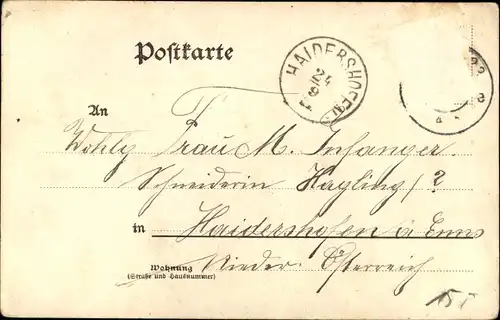 Postkarte
HAIDERSHOFEN
24
An
Wohlg Frau M. Infanger
Schneiderin Hayling / 2
in Haidershofen a Enns
Wohnung
(Straße und Hausnummer)
Nieder-Österreich